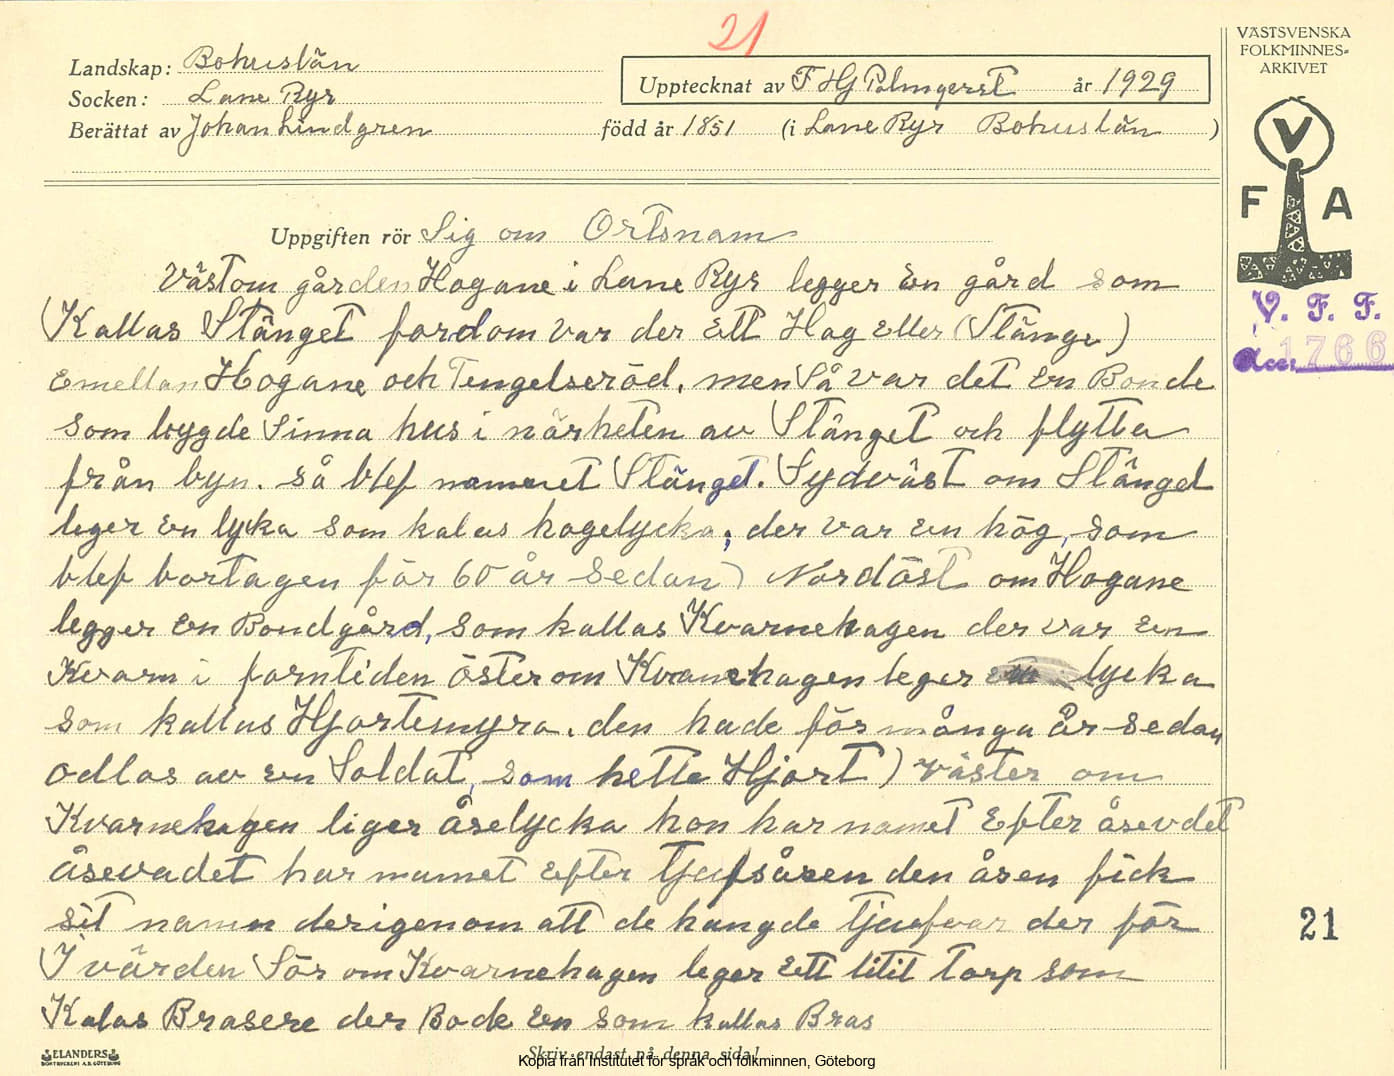 21
VÄSTSVENSKA
FOLKMINNES-
ARKIVET
Landskap: Bohuslän
Upptecknat av F Hj Palmqvist år 1929
Socken: Lane Ryr
Berättat av Johan Lindgren född år 1851 (i Lane Ryr Bohuslän )
V
F A
Uppgiften rör Sig om Ortsnam
Västom gården Hogane i Lane Ryr legger En gård som
Kallas Stänget fordom var der Ett Hag Eller (Stänge)
Emellan Hogane och Tengelseröd, men Så var det En Bonde
som bygde Sinna hus i närheten av Stänget och flytta
från byn. Så blef namnet Stänget. Sydväst om Stänget
leger En lycka som kalas hogelycka, der var en hög, som
blef bortagen för 60 år sedan) Nordöst om Hogane
legger En Bondgård, som kallas Kvarnehagen der var en
Kvarn i forntiden öster om Kvarnehagen leger en lycka
som kallas Hjortemyra. den hade för många År sedan
odlas av en Soldat, som hette Hjort) väster om
Kvarnehagen liger åselycka hon har namet Efter åsevdet
åsevadet har namet Efter tjufsåsen den åsen fick
sit namn derigenom att de hängde tjufvar der för
I värden Sör om Kvarnehagen leger Ett litit torp som
Kalas Brasere der Bode En som kallas Bras
V. F. F.
Acc. 1766
21
ELANDERS
BOKTRYCKERI A.B. GÖTEBORG
Skriv endast på denna sida!
Kopia från Institutet för språk och folkminnen, Göteborg